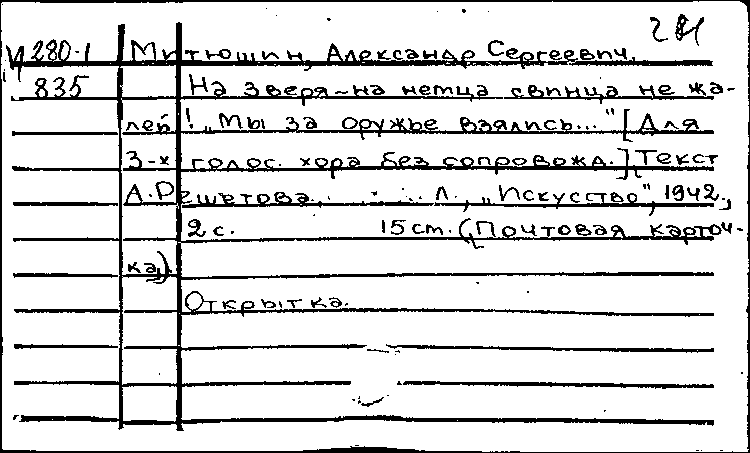 281
И 280-1 Митюшин, Александр Сергеевич.
835 На зверя-на немца свинца не жа-
лей! „Мы за оружье взялись..." [Для
3-х голос. хора без сопровожд.] [Текст
А. Решетова. Л., „Искусство", 1942.,
2 с. 15 ст. ([Почтовая карточ-
ка]).
Открытка.